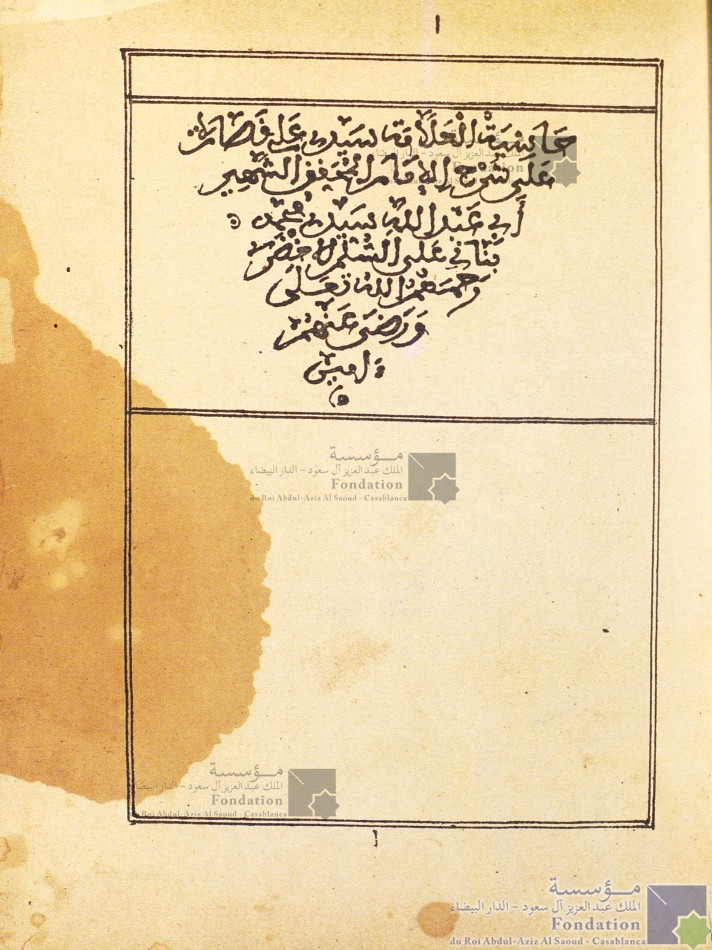 ١
حَاشِيَةُ الْعَلَّامَة سَيِّدِي عَلِي قَصَّارَة
عَلَى شَرْحِ الإِمَامِ الْمُحَقِّقِ الشَّهِير
أَبِي عَبْدِ اللهِ سَيِّدِي مُحَمَّد
بَنَّانِي عَلَى السُّلَّمِ لِلأَخْضَرِي
رَحِمَهُمُ اللهُ تَعَالَى
وَرَضِيَ عَنْهُمْ
ءامين
ه
مؤسسة
الملك عبد العزيز آل سعود - الدار البيضاء
Fondation
du Roi Abdul-Aziz Al Saoud - Casablanca
مؤسسة
الملك عبد العزيز آل سعود - الدار البيضاء
Fondation
du Roi Abdul-Aziz Al Saoud - Casablanca
١
مؤسسة
الملك عبد العزيز آل سعود - الدار البيضاء
Fondation
du Roi Abdul-Aziz Al Saoud - Casablanca